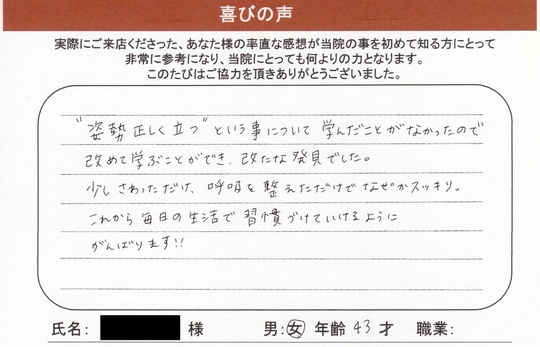 喜びの声
実際にご来店くださった、あなた様の率直な感想が当院の事を初めて知る方にとって
非常に参考になり、当院にとっても何よりの力となります。
このたびはご協力を頂きありがとうございました。
"姿勢正しく立つ"という事について学んだことがなかったので
改めて学ぶことができ、改たな発見でした。
少しさわっただけ、呼吸を整えただけでなぜかスッキリ。
これから毎日の生活で習慣づけていけるように
がんばります!!
氏名: 様 男:女 年齢 43 才 職業: